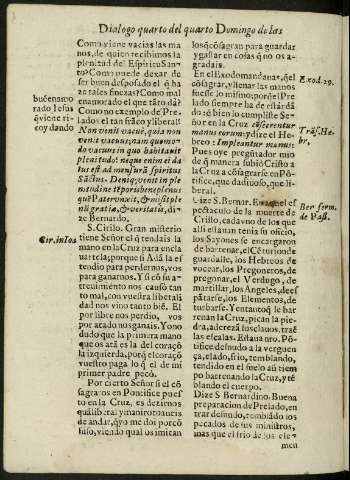 Dialogo quarto del quarto Domingo de las
Como viene vacias las ma
nos, de quien recibimos la
plenitud del Espiritu San-
to? Como puede dexar de
ser buen desposado el q̃ ha
ze tales finezas? Como mal
enamorado el que tãto da?
Como no exemplo de Pre-
lados el tan frãco y liberal?
Non venit vacuè, quia non
venit vacuus; nam quomo-
do vacuus in quo habitauit
plenitudo? neque enim ei da
tus est ad mensurã spiritus
Sãctus. Deniq; venit in ple
nitudine tẽporis beneplenus
quẽ Pater vnxit, & misit ple
nũ gratiæ, & veritatis, di-
ze Bernardo.
buẽ enamo
rado Iesus
q̃ viene ri-
co y dando
S. Cirilo. Gran misterio
tiene Señor el q̃ tendais la
mano en la Cruz para encla
uartela; porque si Adã la es
tendio para perdernos, vos
para ganarnos. Y si cõ su a-
treuimiento nos causò tan
to mal, con vuestra liberali
dad nos vino tanto biẽ. El
por libre nos perdio, vos
por atado nos ganais. Yo no
dudo que la primera mano
que os atã es la del coraçõ
la izquierda, porq̃ el coraçõ
vuestro paga lo q̃ el de mi
primer padre pecò.
Cir. in Ioã
Por cierto Señor si el cõ
sagraros en Pontifice pues
to en la Cruz, es dezirnos
de andar, q̃ yo me doi por cõ
fuso, viendo qual os imitan
los q̃ cõsagran para guardar
y gastar en cosas q̃ no os a-
gradais.
En el Exodo mandaua, q̃ el
cõsagrar, y llenar las manos
fuesse lo mismo, porq̃ el Pre
lado siempre ha de estar dã
do; si bien lo cumpliste Se-
ñor en la Cruz cõsecrentur
manus eorum: y dize el He-
breo: Impleantur manus:
Pues oye pregũtador mio
de q̃ manera subiò Cristo a
la Cruz a cõsagrarse en Põ-
tifice, que dadiuoso, que li-
beral.
Exod. 29.
Trãs. He-
br.
Dize S. Bernar. En aquel es
pectaculo de la muerte de
Cristo, cada vno de los que
alli estauan tenia su oficio,
los Sayones se encargaron
de barrenar, el Cẽturion de
guardalle, los Hebreos de
vocear, los Pregoneros, de
pregonar, el Verdugo, de
martillar, los Angeles, de es
pãtarse, los Elementos, de
turbarse. Y entanto q̃ le bar
renan la Cruz, pican la pie
dra, adereçã los clauos, traẽ
las escalas. Estaua nro. Põ-
tifice desnudo a la verguen
ça, elado, frio, temblando,
tendido en el suelo aũ tiem
po barrenando la Cruz, y tẽ
blando el cuerpo.
Ber. serm.
de Pass.
Dize S. Bernardino: Buena
preparacion de Prelado, en
trar desnudo, temblãdo los
pecados de sus ministros,
mas que el frio de los ele-
men